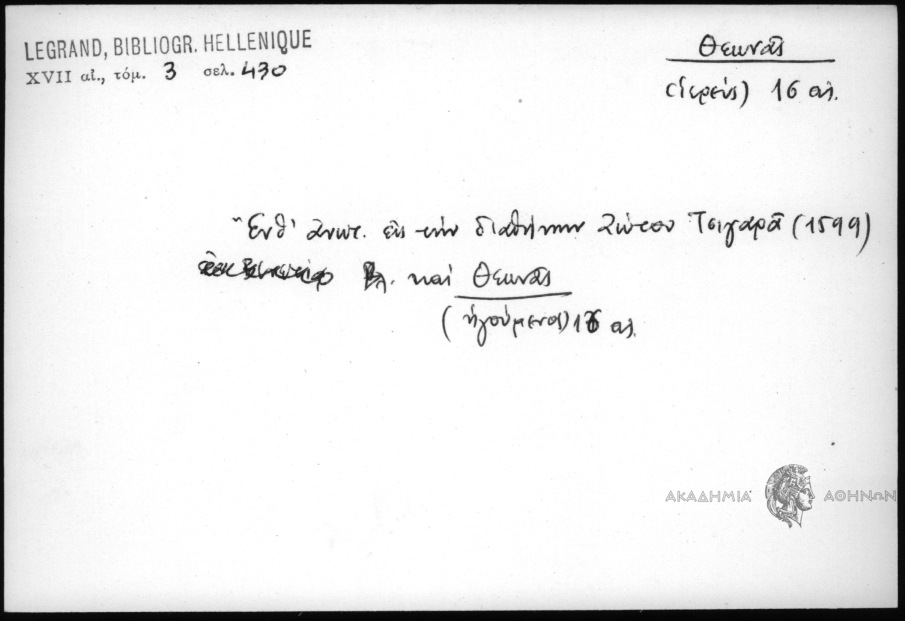 LEGRAND, BIBLIOGR. HELLENIQUE
XVII αἰ., τόμ. 3 σελ. 430
Θεωνᾶς
(ἱερεύς) 16 αἰ.
Ἔνθ' ἀνωτ. εἰς τὴν διαθήκην Ζώτου Τσιγαρᾶ (1599)
Βλ. καὶ Θεωνᾶς
(ἡγούμενος) 16 αἰ.
ΑΚΑΔΗΜΙΑ ΑΘΗΝΩΝ